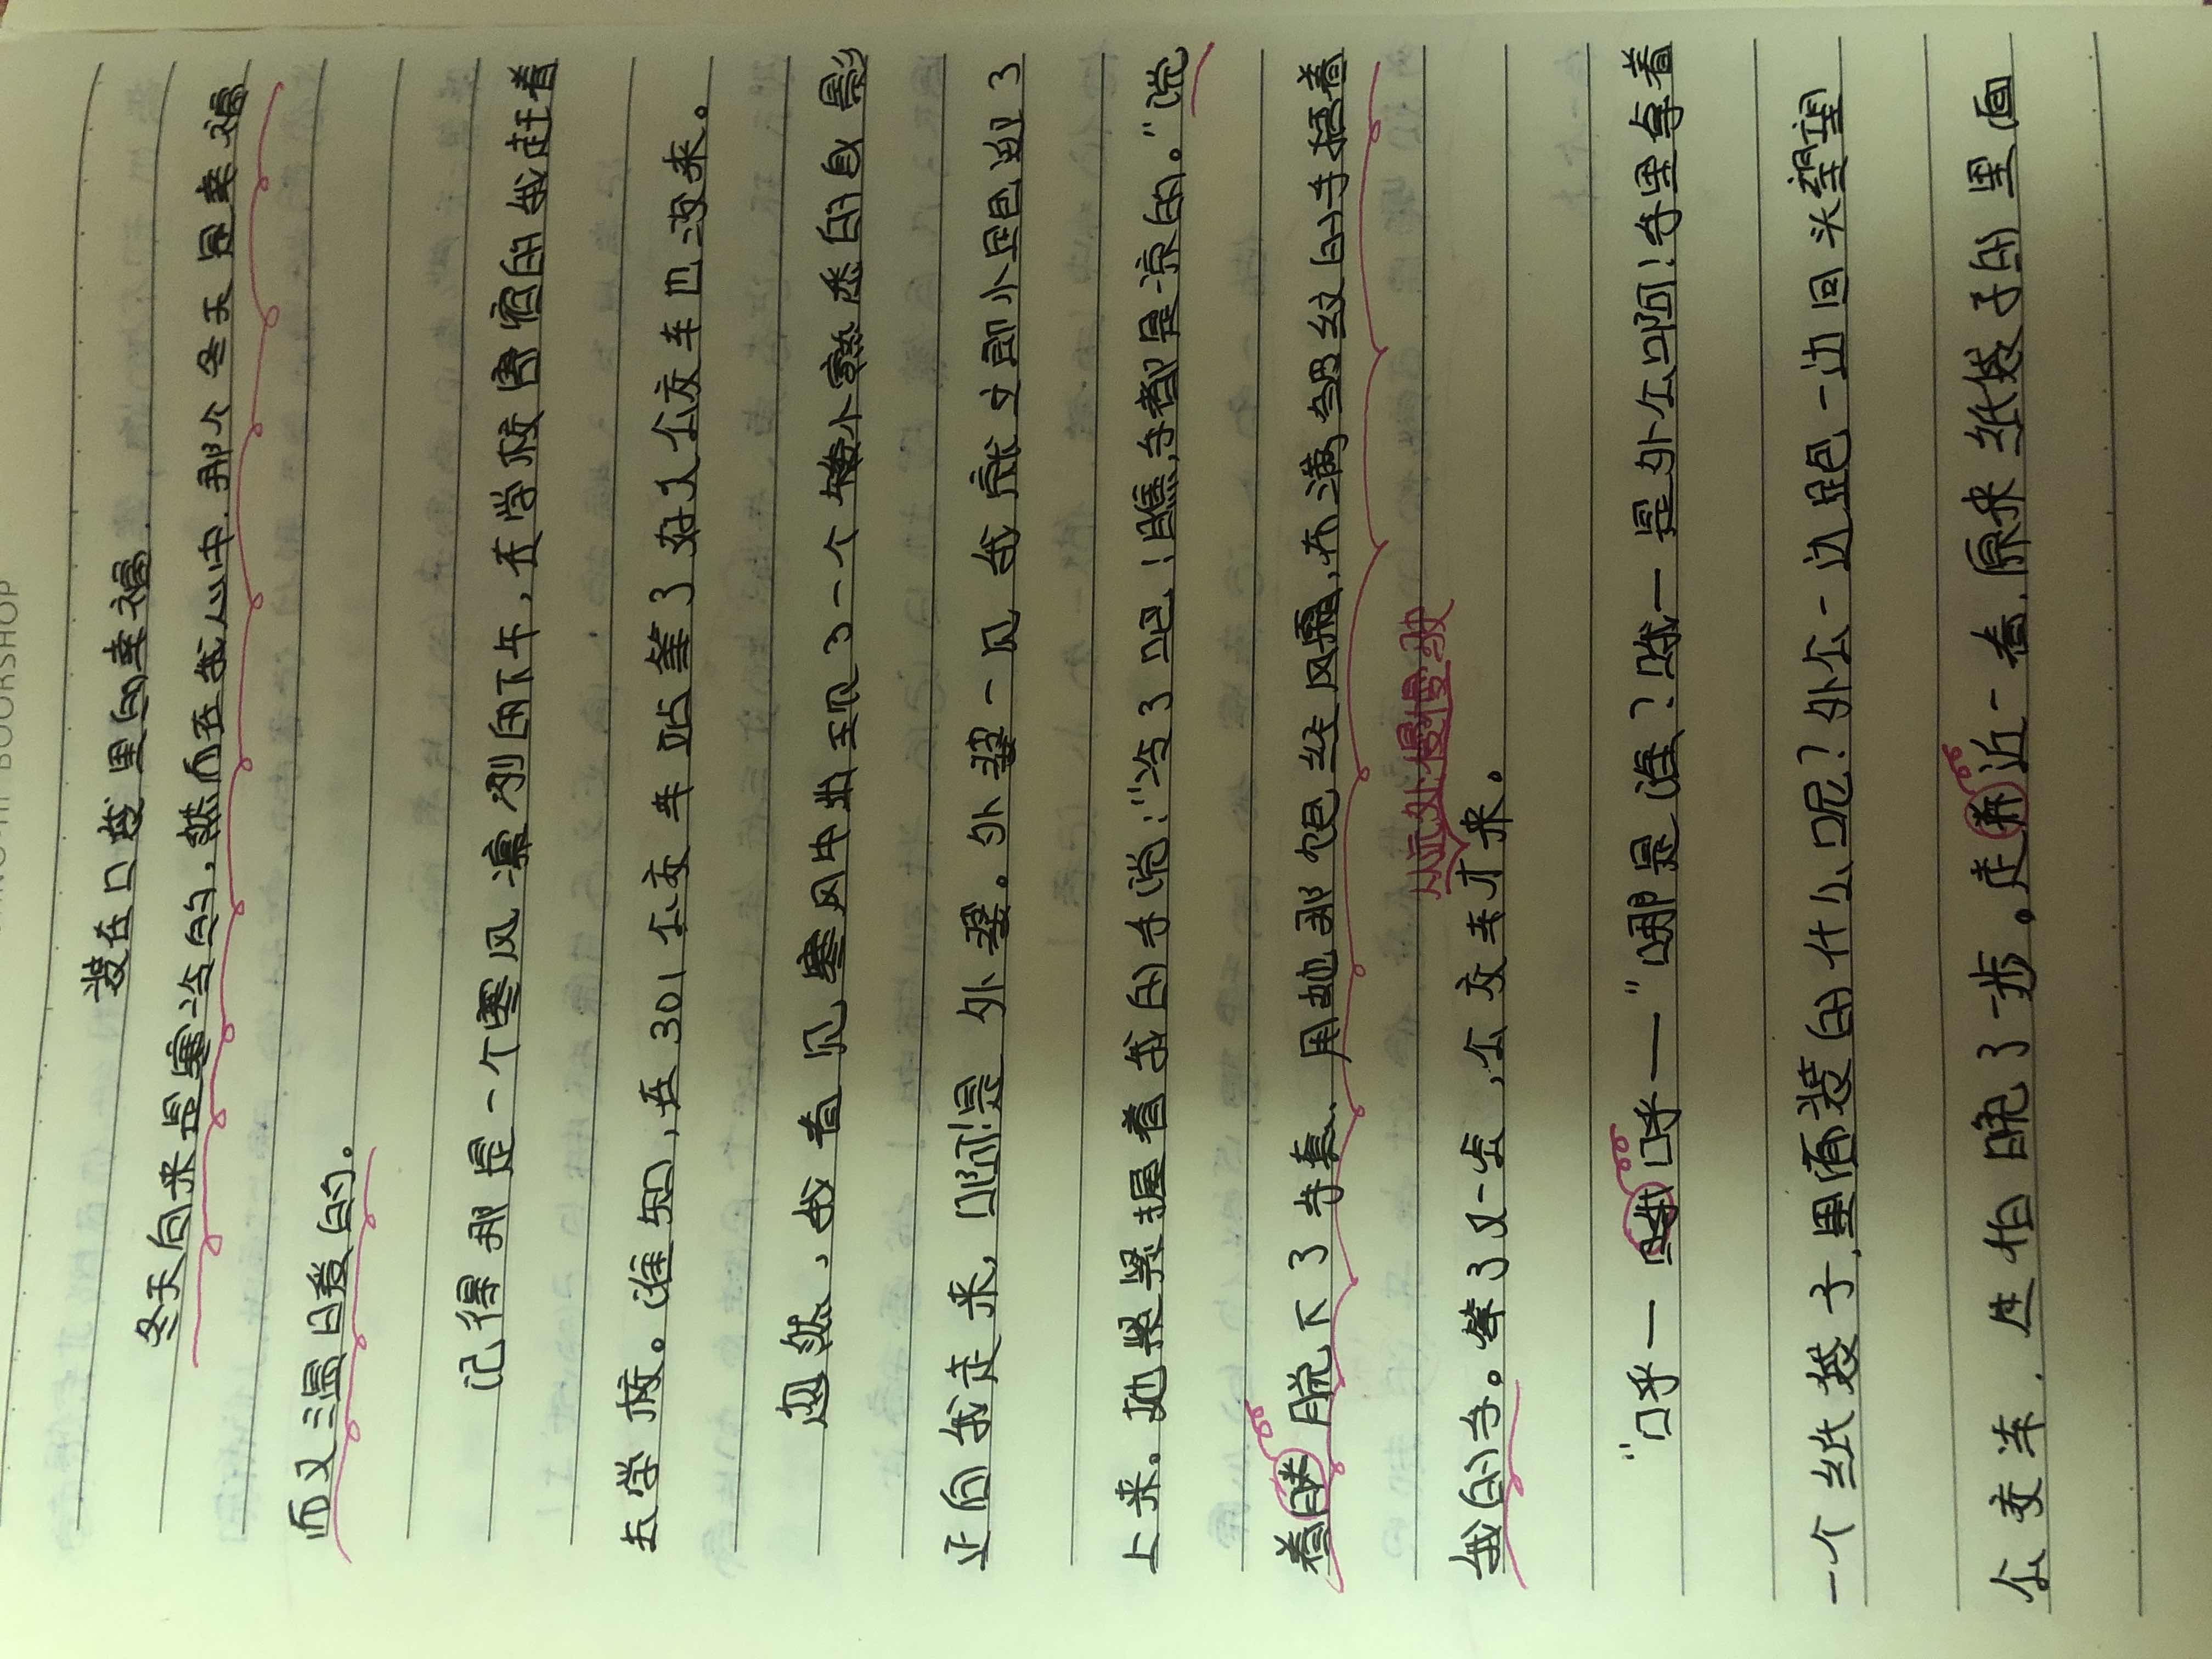 装在口袋里的幸福
冬天向来是寒冷的，然而在我心中，那个冬天是幸福
而又温暖的。
记得那是一个寒风凛冽的下午，在学校寄宿的我赶着
去学校。谁知，在301公交车站等了好久公交车也没来。
忽然，我看见寒风中出现了一个矮小熟悉的身影
正向我走来，啊！是外婆。外婆一见我就立即小跑到了
上来。她紧紧握着我的手说："冷了吧！瞧，手都是凉的。"说
着脱下了手套、用她那饱经风霜，布满皱纹的手捂着
从远处慢慢驶
我的手。等了又一会，公交车才来。
"呼—呼——"哪是谁？哦—是外公啊！手里拿着
一个纸袋子，里面装的什么呢？外公一边跑一边回头望望
公交车，生怕晚了一步。走近一看，原来纸袋子的里面